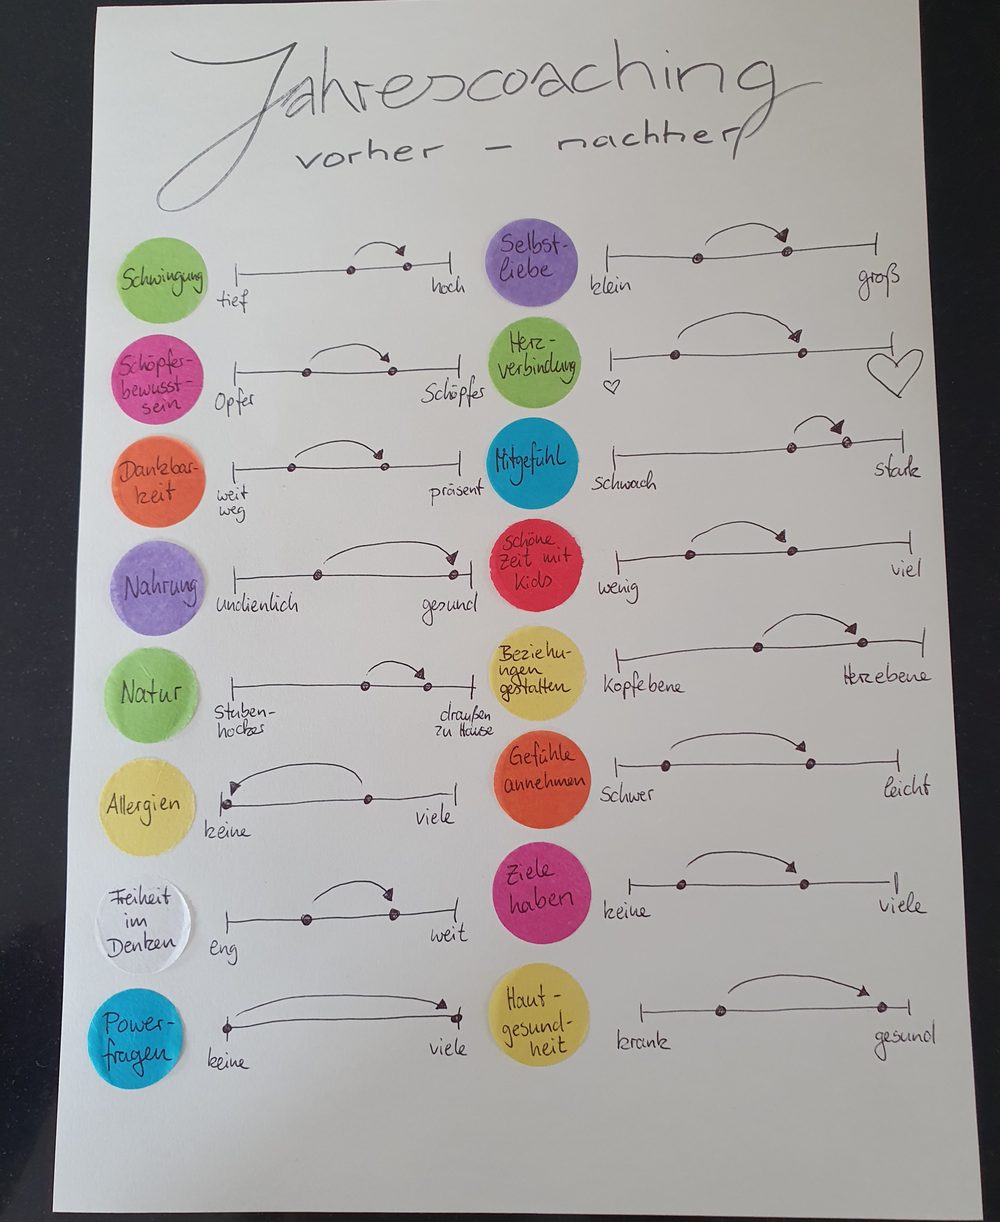 Jahrescoaching
vorher – nachher
Schwingung
tief
hoch
Schöpfer-
bewusst-
sein
Opfer
Schöpfer
Dankbar-
keit
weit
weg
präsent
Nahrung
undienlich
gesund
Natur
Stuben-
hocker
draußen
zu Hause
Allergien
keine
viele
Freiheit
im
Denken
eng
weit
Power-
fragen
keine
viele
Selbst-
liebe
klein
groß
Herz-
verbindung
Mitgefühl
schwach
stark
schöne
Zeit mit
Kids
wenig
viel
Beziehu-
ngen
gestalten
Kopfebene
Herzebene
Gefühle
annehmen
Schwer
leicht
Ziele
haben
keine
viele
Haut-
gesund-
heit
krank
gesund